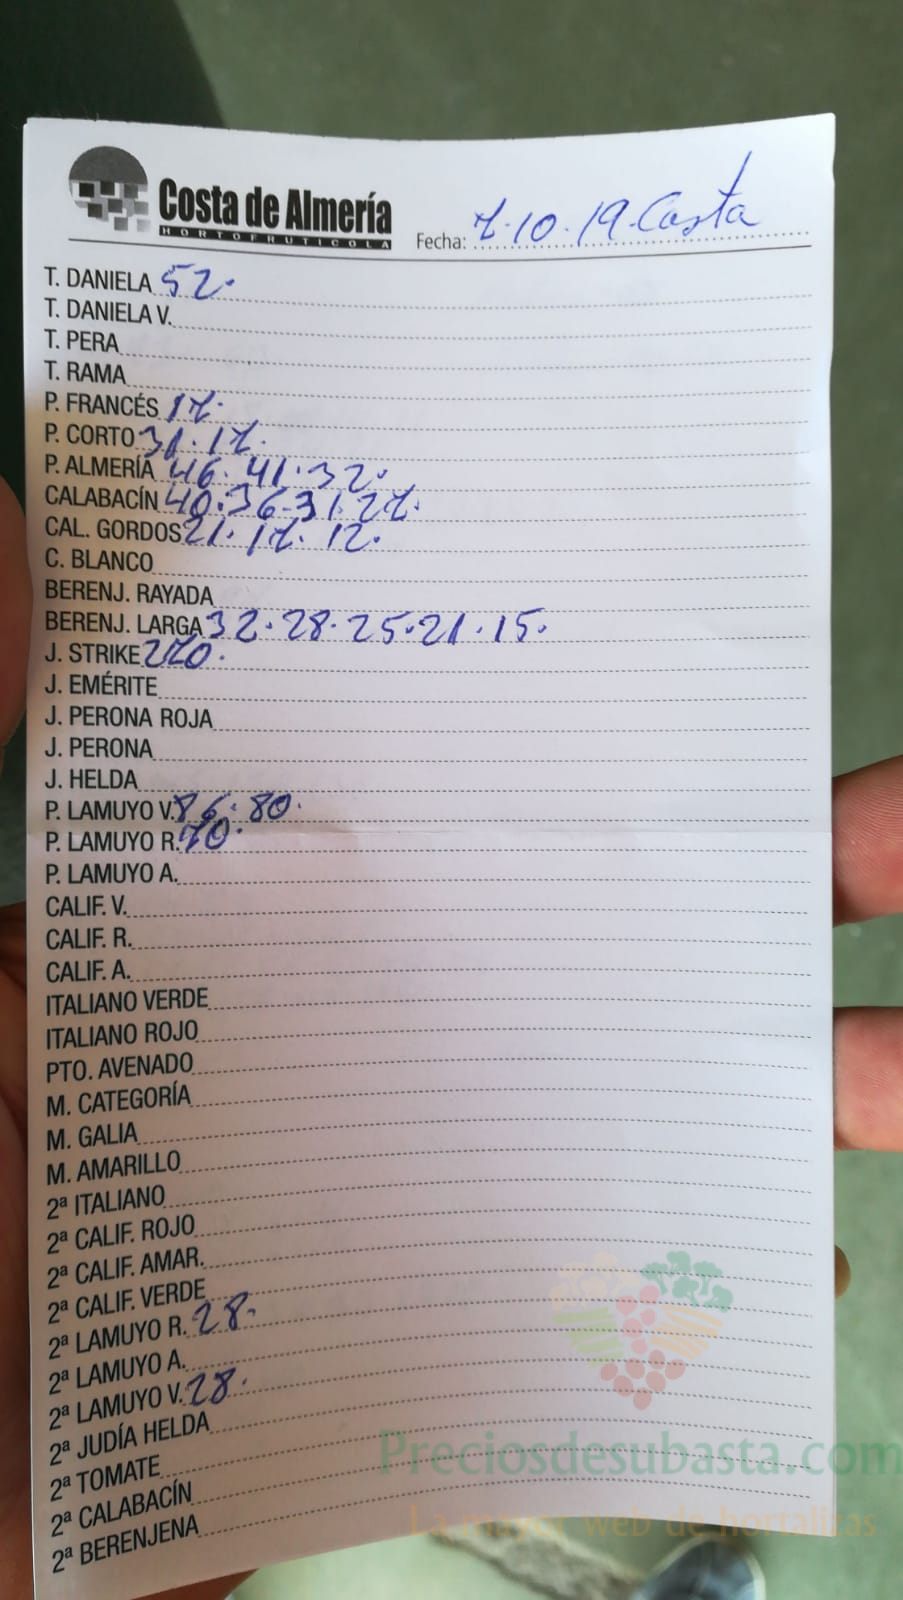 Costa de Almería
HORTOFRUTICOLA
Fecha: 7.10.19.Costa
T. DANIELA 52.
T. DANIELA V.
T. PERA
T. RAMA
P. FRANCÉS 17.
P. CORTO 31.17.
P. ALMERÍA 46.41.32.
CALABACÍN 40.36.31.27.
CAL. GORDOS 21.17.12.
C. BLANCO
BERENJ. RAYADA
BERENJ. LARGA 32.28.25.21.15.
J. STRIKE 270.
J. EMÉRITE
J. PERONA ROJA
J. PERONA
J. HELDA
P. LAMUYO V. 86.80.
P. LAMUYO R. 70.
P. LAMUYO A.
CALIF. V.
CALIF. R.
CALIF. A.
ITALIANO VERDE
ITALIANO ROJO
PTO. AVENADO
M. CATEGORÍA
M. GALIA
M. AMARILLO
2ª ITALIANO
2ª CALIF. ROJO
2ª CALIF. AMAR.
2ª CALIF. VERDE
2ª LAMUYO R. 28.
2ª LAMUYO A.
2ª LAMUYO V. 28.
2ª JUDÍA HELDA
2ª TOMATE
2ª CALABACÍN
2ª BERENJENA
Preciosdesubasta.com
La mayor web de hortalizas